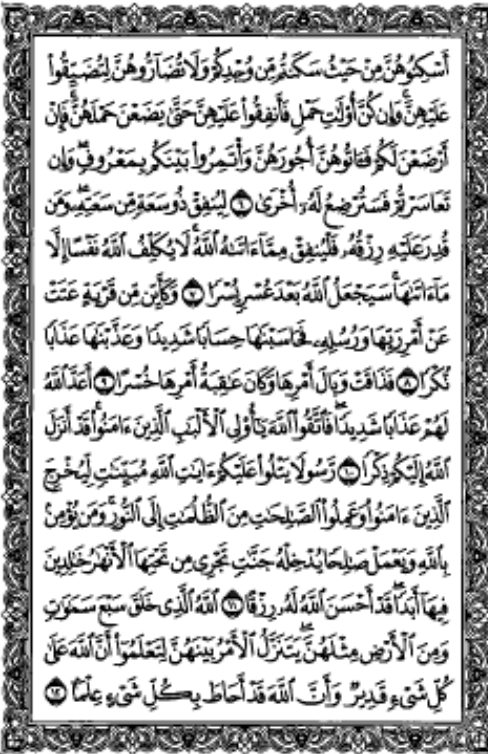 أَسْكِنُوهُنَّ مِنْ حَيْثُ سَكَنتُم مِّن وُجْدِكُمْ وَلَا تُضَآرُّوهُنَّ لِتُضَيِّقُوا۟
عَلَيْهِنَّ ۚ وَإِن كُنَّ أُو۟لَـٰتِ حَمْلٍ فَأَنفِقُوا۟ عَلَيْهِنَّ حَتَّىٰ يَضَعْنَ حَمْلَهُنَّ ۚ فَإِنْ
أَرْضَعْنَ لَكُمْ فَـَٔاتُوهُنَّ أُجُورَهُنَّ ۖ وَأْتَمِرُوا۟ بَيْنَكُم بِمَعْرُوفٍ ۖ وَإِن
تَعَاسَرْتُمْ فَسَتُرْضِعُ لَهُۥٓ أُخْرَىٰ ٦ لِيُنفِقْ ذُو سَعَةٍ مِّن سَعَتِهِۦ ۖ وَمَن
قُدِرَ عَلَيْهِ رِزْقُهُۥ فَلْيُنفِقْ مِمَّآ ءَاتَىٰهُ ٱللَّهُ ۚ لَا يُكَلِّفُ ٱللَّهُ نَفْسًا إِلَّا
مَآ ءَاتَىٰهَا ۚ سَيَجْعَلُ ٱللَّهُ بَعْدَ عُسْرٍ يُسْرًا ٧ وَكَأَيِّن مِّن قَرْيَةٍ عَتَتْ
عَنْ أَمْرِ رَبِّهَا وَرُسُلِهِۦ فَحَاسَبْنَـٰهَا حِسَابًا شَدِيدًا وَعَذَّبْنَـٰهَا عَذَابًا
نُّكْرًا ٨ فَذَاقَتْ وَبَالَ أَمْرِهَا وَكَانَ عَـٰقِبَةُ أَمْرِهَا خُسْرًا ٩ أَعَدَّ ٱللَّهُ
لَهُمْ عَذَابًا شَدِيدًا ۖ فَٱتَّقُوا۟ ٱللَّهَ يَـٰٓأُو۟لِى ٱلْأَلْبَـٰبِ ٱلَّذِينَ ءَامَنُوا۟ ۚ قَدْ أَنزَلَ
ٱللَّهُ إِلَيْكُمْ ذِكْرًا ١٠ رَّسُولًا يَتْلُوا۟ عَلَيْكُمْ ءَايَـٰتِ ٱللَّهِ مُبَيِّنَـٰتٍ لِّيُخْرِجَ
ٱلَّذِينَ ءَامَنُوا۟ وَعَمِلُوا۟ ٱلصَّـٰلِحَـٰتِ مِنَ ٱلظُّلُمَـٰتِ إِلَى ٱلنُّورِ ۚ وَمَن يُؤْمِنۢ
بِٱللَّهِ وَيَعْمَلْ صَـٰلِحًا يُدْخِلْهُ جَنَّـٰتٍ تَجْرِى مِن تَحْتِهَا ٱلْأَنْهَـٰرُ خَـٰلِدِينَ
فِيهَآ أَبَدًا ۖ قَدْ أَحْسَنَ ٱللَّهُ لَهُۥ رِزْقًا ١١ ٱللَّهُ ٱلَّذِى خَلَقَ سَبْعَ سَمَـٰوَٰتٍ
وَمِنَ ٱلْأَرْضِ مِثْلَهُنَّ يَتَنَزَّلُ ٱلْأَمْرُ بَيْنَهُنَّ لِتَعْلَمُوٓا۟ أَنَّ ٱللَّهَ عَلَىٰ
كُلِّ شَىْءٍ قَدِيرٌ وَأَنَّ ٱللَّهَ قَدْ أَحَاطَ بِكُلِّ شَىْءٍ عِلْمًۢا ١٢